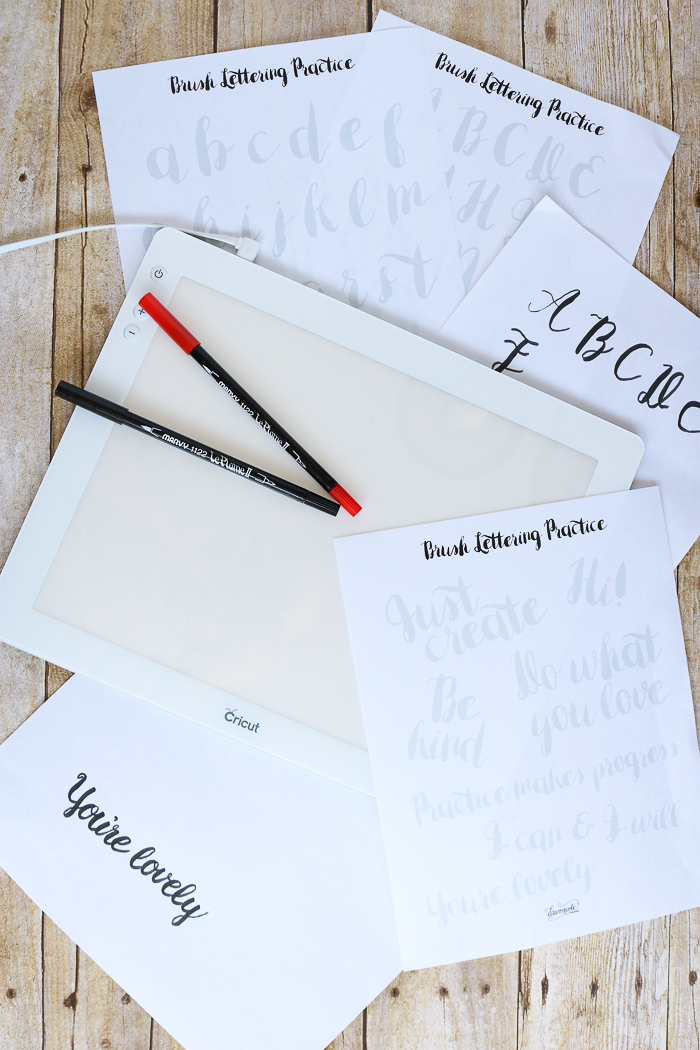 Brush Lettering Practice
a b c d e f
h i j k l m
r s t
Brush Lettering Practice
B C D E
H
A B C D E
E
+
-
MARVY 1122 Le Plume II
MARVY 1122 Le Plume II
Cricut
Brush Lettering Practice
Just Hi!
create
Be Do what
kind you love
Practice makes progress
I can & I will
You're lovely
You're lovely